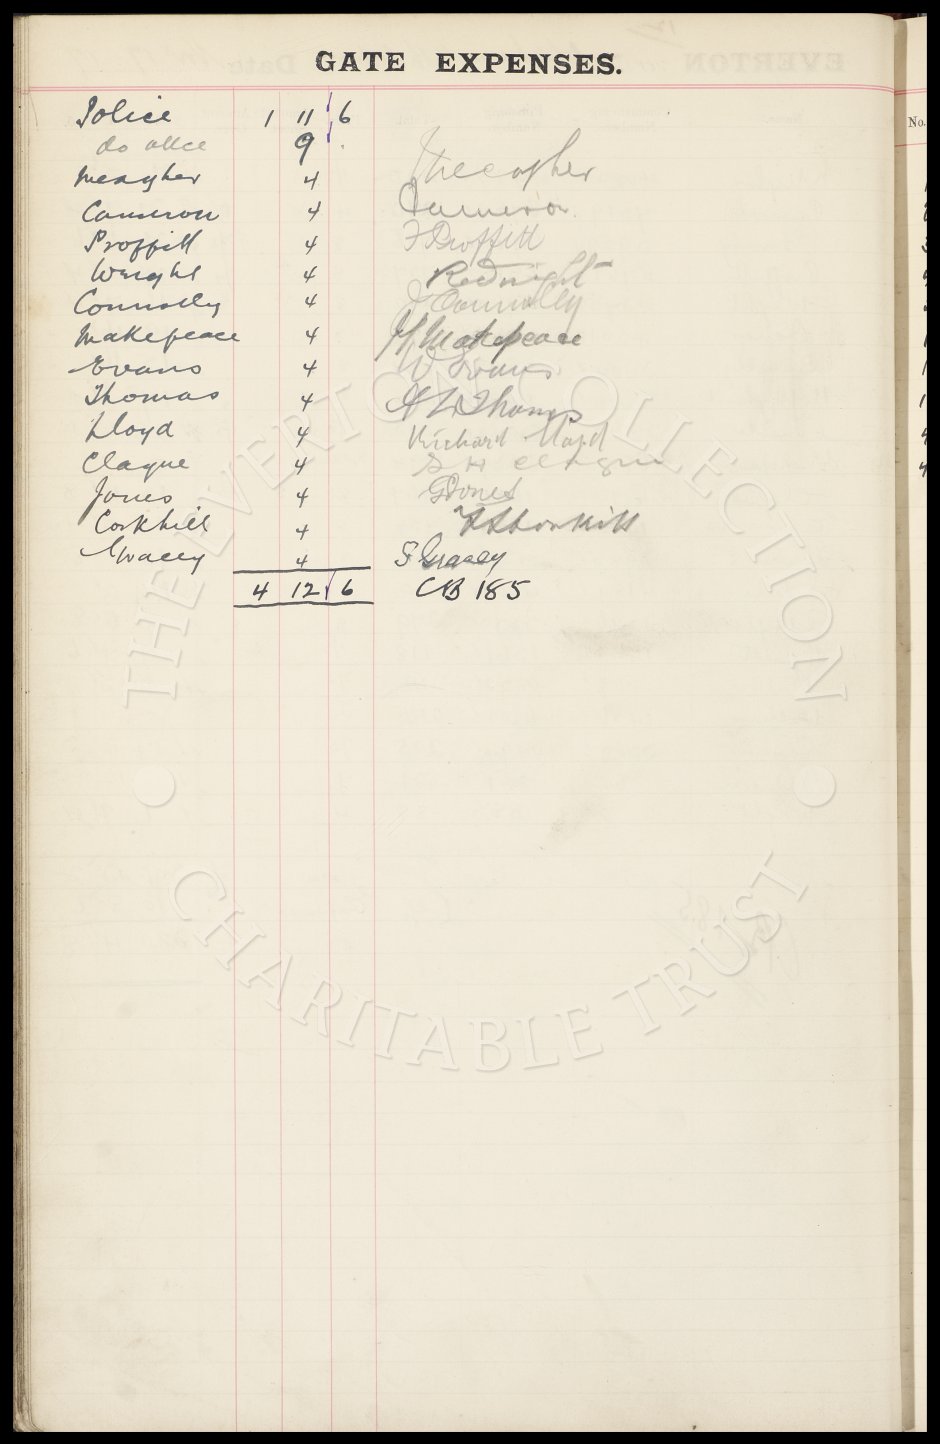 GATE EXPENSES.
Police 1 11 6
do office 9
Meagher 4 Meagher
Cameron 4 Cameron
Proffitt 4 F Proffitt
Wright 4
Connolly 4 J Connolly
Makepeace 4 H Makepeace
Evans 4 W Evans
Thomas 4 Thomas
Lloyd 4 Richard Lloyd
Clague 4 Clague
Jones 4 G Jones
Corkhill 4
Gracey 4 S Gracey
4 12 6 CB 185
No.
THE EVERTON COLLECTION
CHARITABLE TRUST